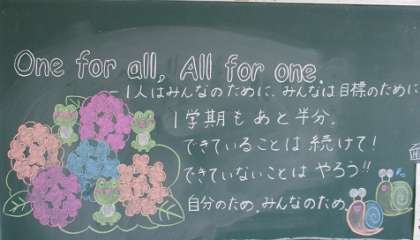 One for all, All for one.
－1人はみんなのために、みんなは目標のために
1学期もあと半分。
できていることは続けて！
できていないことはやろう!!
自分のため、みんなのため